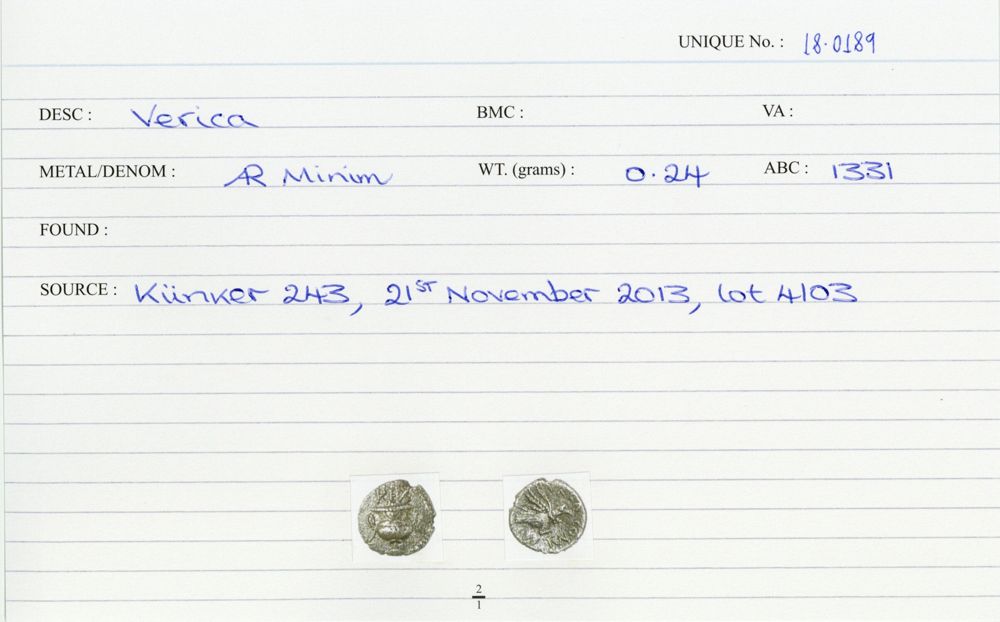 UNIQUE No. : 18.0189
DESC : Verica BMC : VA :
METAL/DENOM : AR Minim WT. (grams) : 0.24 ABC : 1331
FOUND :
SOURCE : Künker 243, 21ST November 2013, lot 4103
2
1